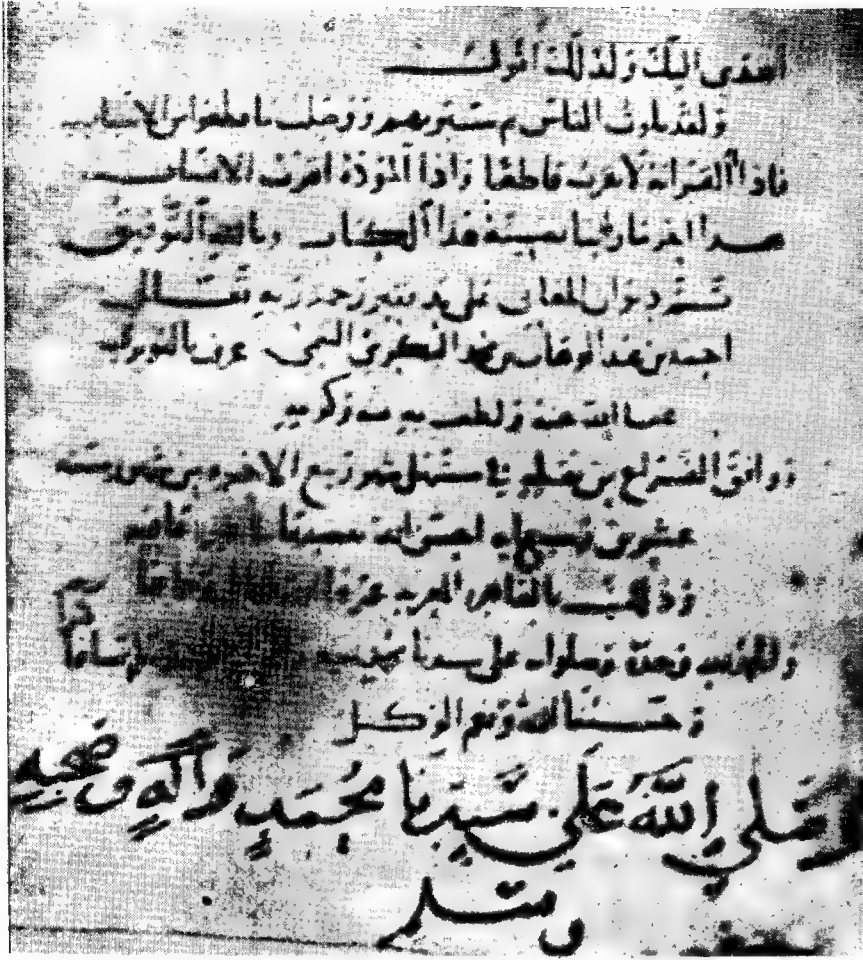 اهدى اليك ولذلك اقول
ولقد بلوت الناس ثم سبرتهم ووصلت ما قطعوا من الاسباب
فاذا القرابة لا تقرب قاطعا واذا المودة اقرب الانساب
هذا اخر ما رتبنا بنية هذا الكتاب وبالله التوفيق
تم ديوان المعاني على يد فقير رحمة ربه تعالى
احمد بن عبد الوهاب بن محمد البكري التيمي عرف بالنويري
عفا الله عنه ولطف به بمنه وكرمه
ووافق الفراغ من تعليقه في مستهل شهر ربيع الاخر من شهور سنة
عشرين وسبعمايه احسن الله
وذلك بالقاهرة المعزية
والحمد لله وحده وصلواته على سيدنا محمد نبيه
وحسبنا الله ونعم الوكيل
وصلى الله على سيدنا محمد واله وصحبه
وسلم